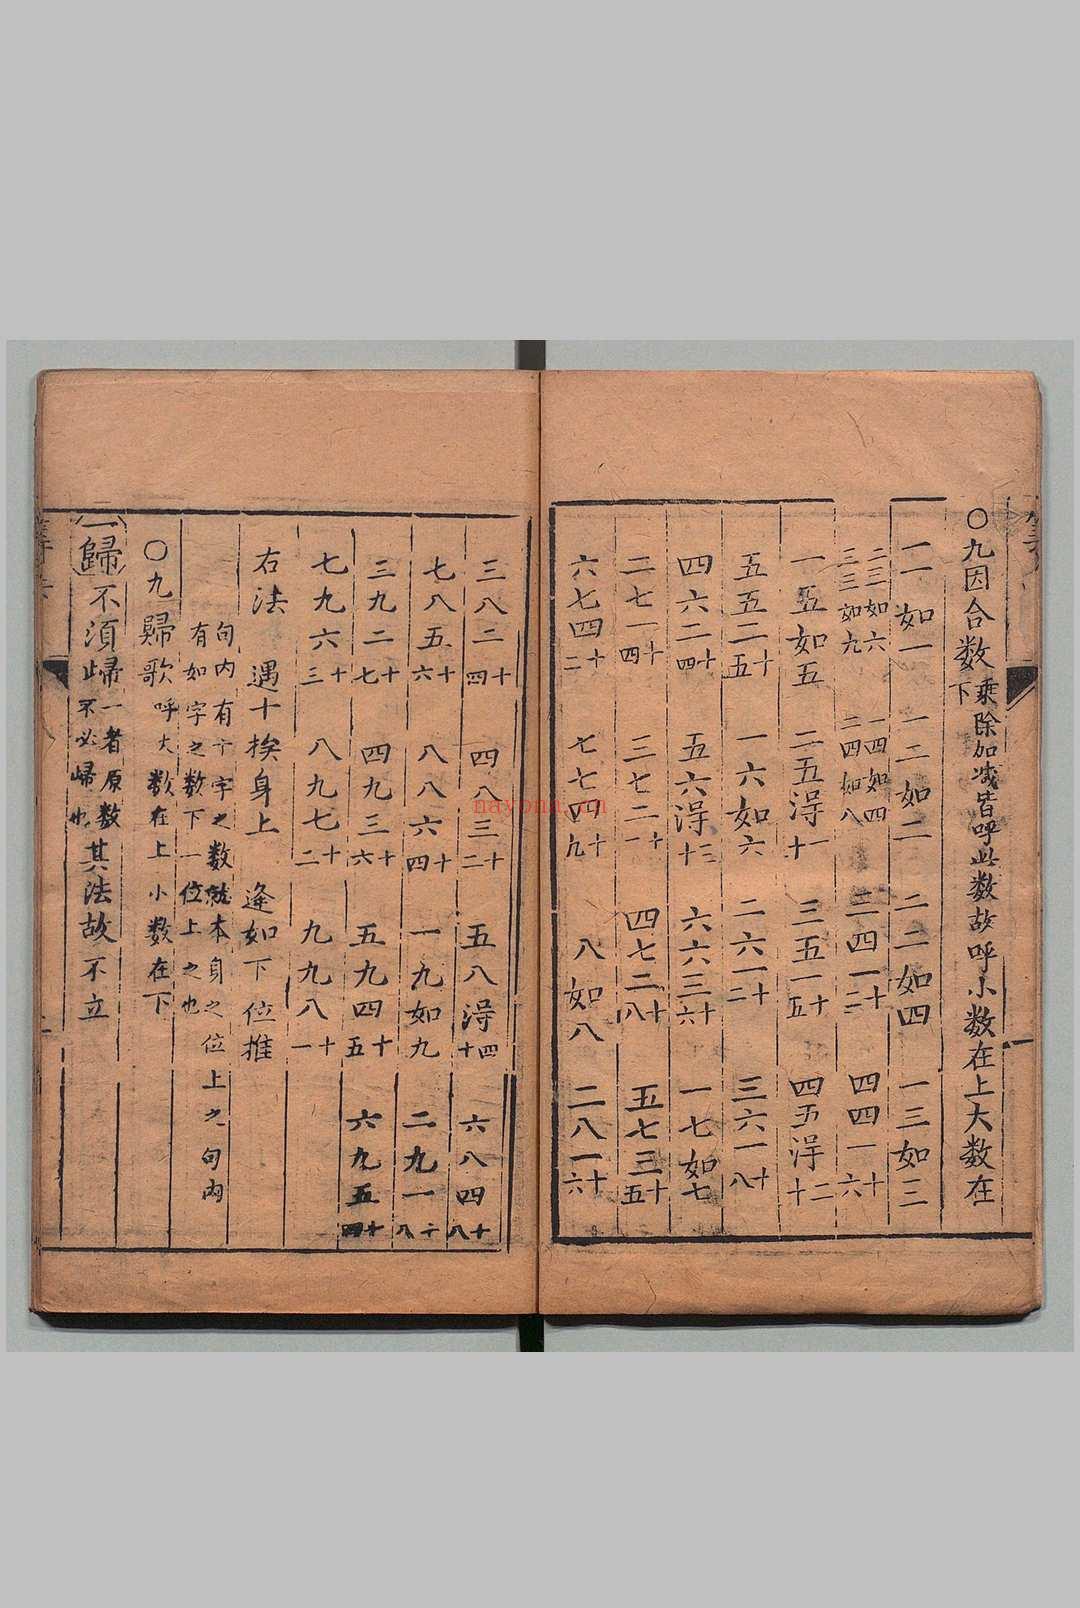 〇九因合数 乘除加减皆呼此数故呼小数在上大数在下
一一如一 一二如二 二二如四 一三如三
二三如六 三三如九 一四如四 二四如八 三四一十二 四四一十六
一五如五 二五得一十 三五一十五 四五得二十
五五二十五 一六如六 二六一十二 三六一十八
四六二十四 五六得三十 六六三十六 一七如七
二七一十四 三七二十一 四七二十八 五七三十五
六七四十二 七七四十九 八如八 二八一十六
三八二十四 四八三十二 五八得四十 六八四十八
七八五十六 八八六十四 一九如九 二九一十八
三九二十七 四九三十六 五九四十五 六九五十四
七九六十三 八九七十二 九九八十一
右法 遇十挨身上 逢如下位推
句内有十字之数就本身之位上之句内
有如字之数下一位上之也
〇九歸歌 呼大数在上小数在下
一歸不須歸 一者原数不必歸也 其法故不立
nayona.cn